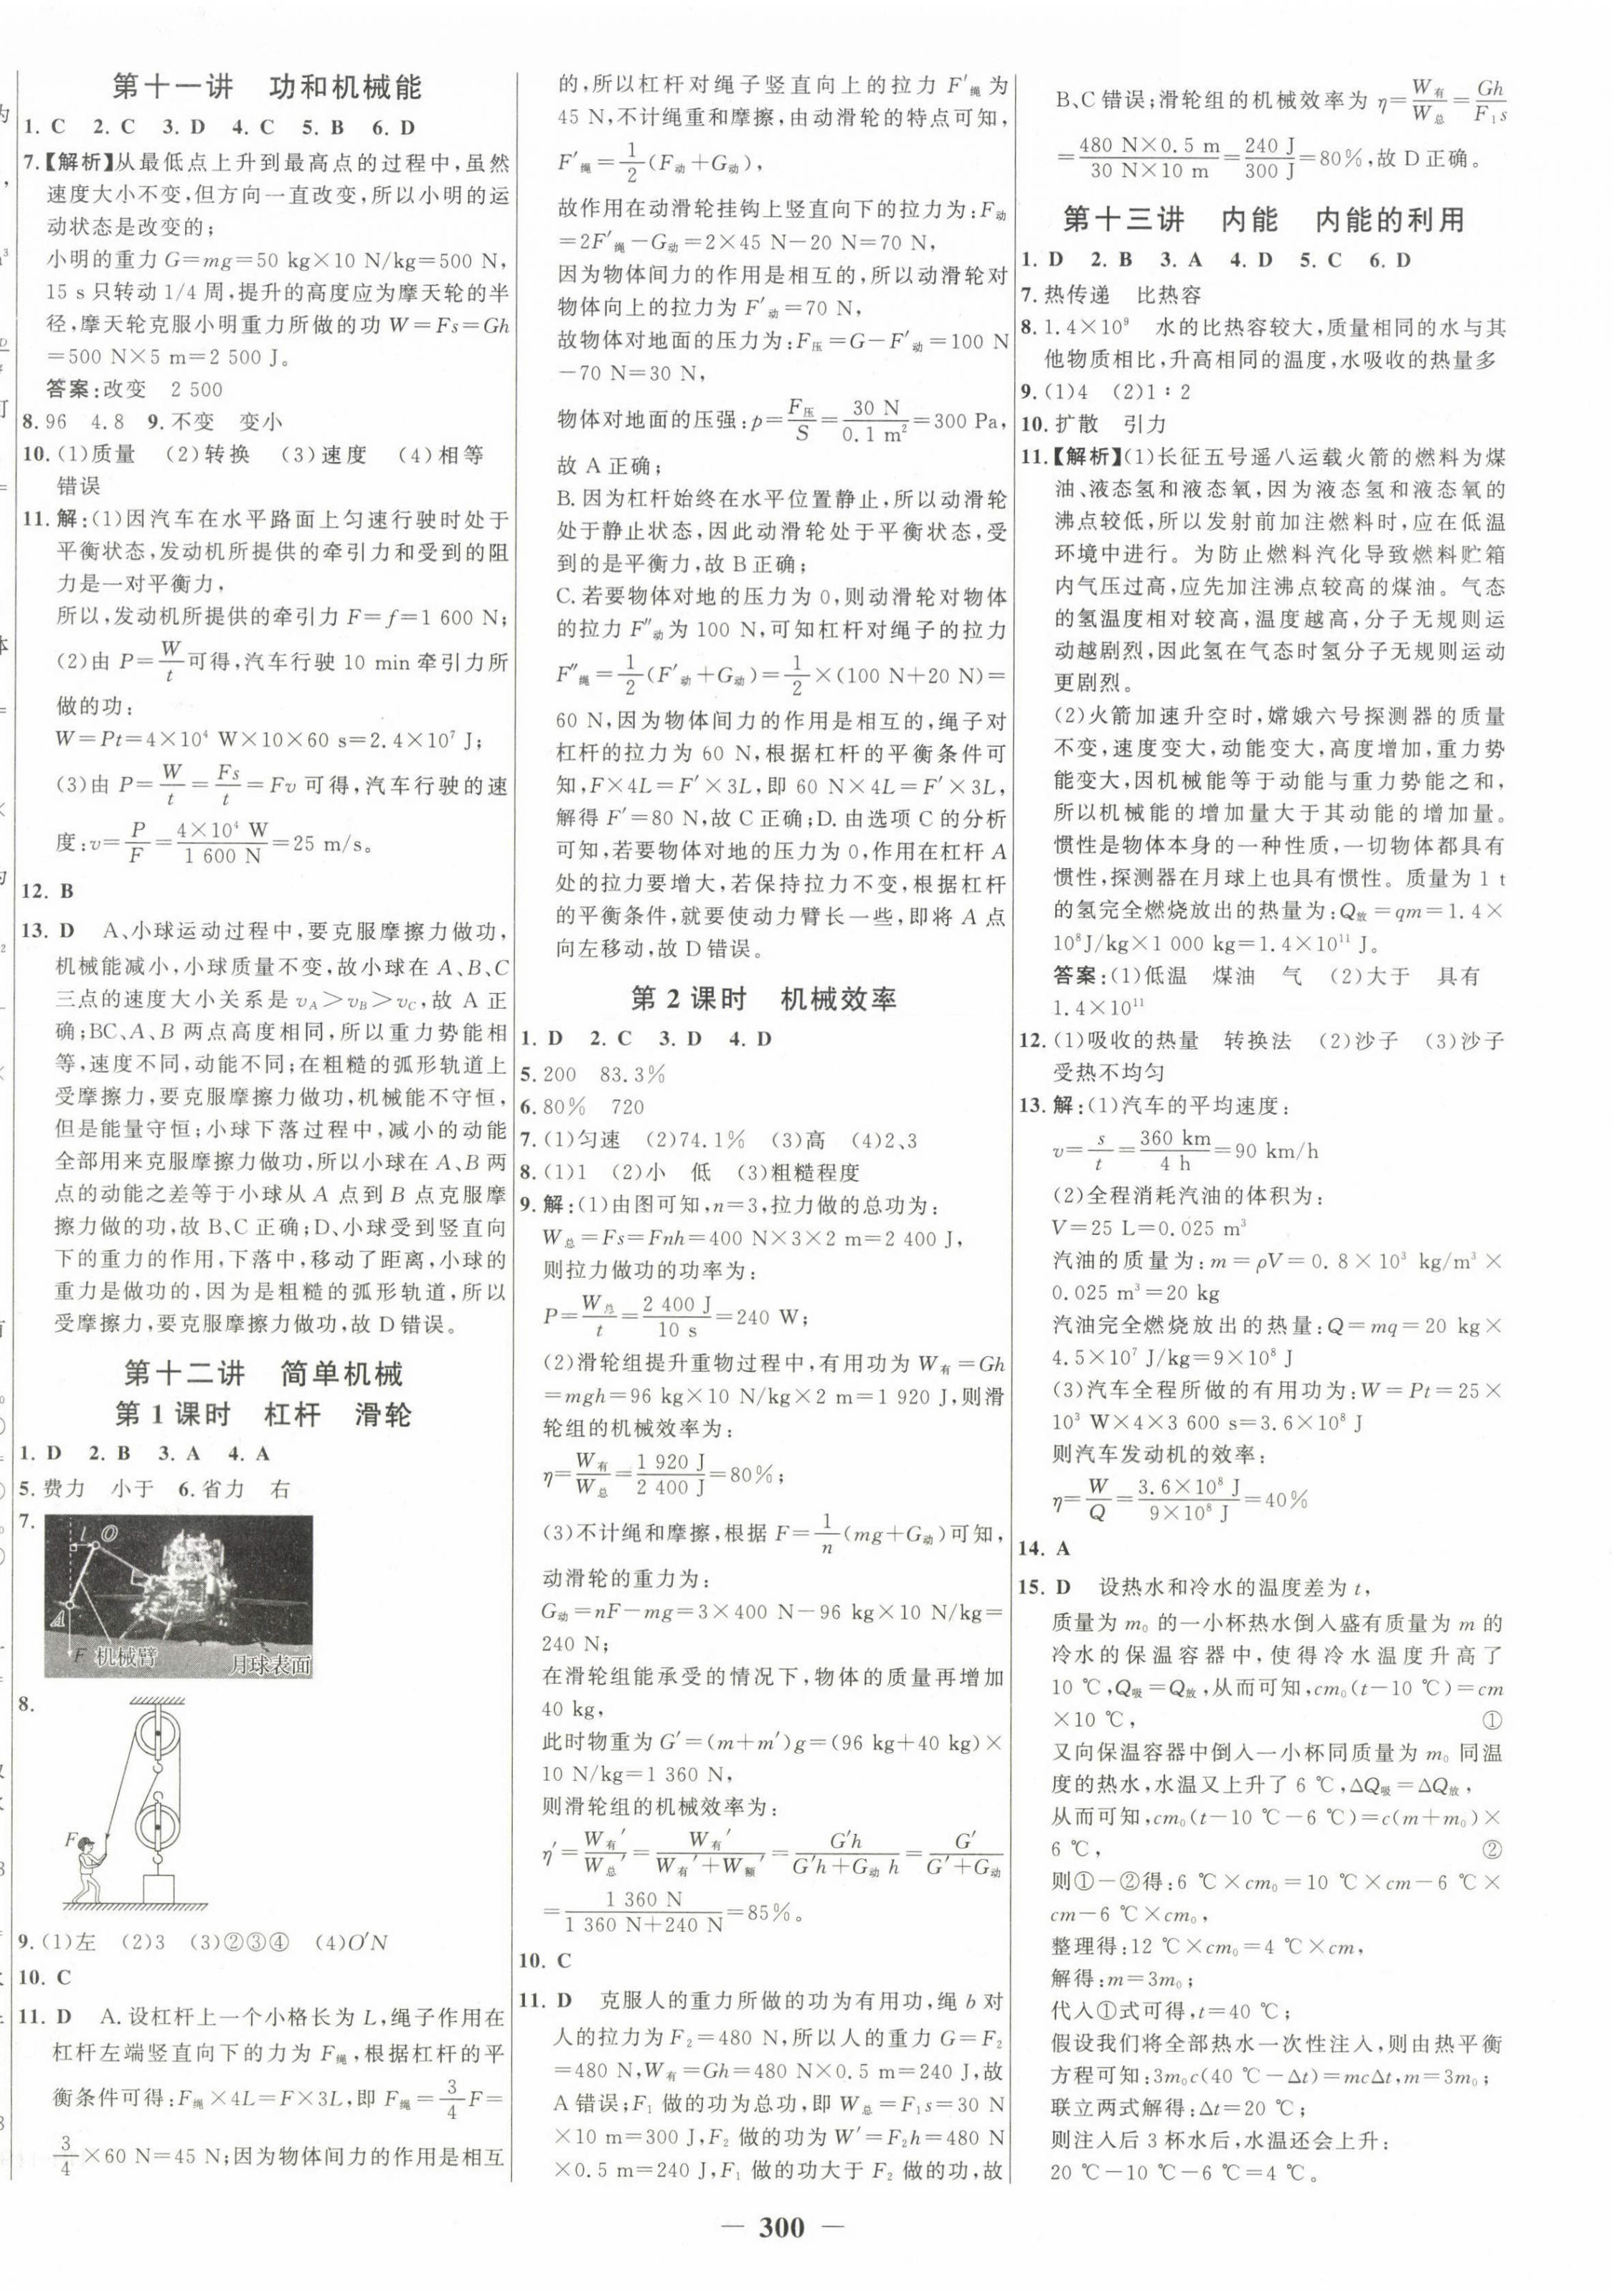 第十一讲 功和机械能
1. C 2. C 3. D 4. C 5. B 6. D
7.【解析】从最低点上升到最高点的过程中,虽然
速度大小不变,但方向一直改变,所以小明的运
动状态是改变的;
小明的重力 G=mg=50 kg×10 N/kg=500 N,
15 s 只转动 1/4 周,提升的高度应为摩天轮的半
径,摩天轮克服小明重力所做的功 W=Fs=Gh
=500 N×5 m=2 500 J。
答案:改变 2 500
8. 96 4.8 9. 不变 变小
10. (1)质量 (2)转换 (3)速度 (4)相等
错误
11. 解:(1)因汽车在水平路面上匀速行驶时处于
平衡状态,发动机所提供的牵引力和受到的阻
力是一对平衡力,
所以,发动机所提供的牵引力 F=f=1 600 N;
(2)由 P=W/t 可得,汽车行驶 10 min 牵引力所
做的功:
W=Pt=4×10⁴ W×10×60 s=2.4×10⁷ J;
(3)由 P=W/t=Fs/t=Fv 可得,汽车行驶的速
度:v=P/F=4×10⁴ W/1 600 N=25 m/s。
12. B
13. D A、小球运动过程中,要克服摩擦力做功,
机械能减小,小球质量不变,故小球在 A、B、C
三点的速度大小关系是 vA>vB>vC,故 A 正
确;BC、A、B 两点高度相同,所以重力势能相
等,速度不同,动能不同;在粗糙的弧形轨道上
受摩擦力,要克服摩擦力做功,机械能不守恒,
但是能量守恒;小球下落过程中,减小的动能
全部用来克服摩擦力做功,所以小球在 A、B 两
点的动能之差等于小球从 A 点到 B 点克服摩
擦力做的功,故 B、C 正确;D、小球受到竖直向
下的重力的作用,下落中,移动了距离,小球的
重力是做功的,因为是粗糙的弧形轨道,所以
受摩擦力,要克服摩擦力做功,故 D 错误。
第十二讲 简单机械
第 1 课时 杠杆 滑轮
1. D 2. B 3. A 4. A
5. 费力 小于 6. 省力 右
7.
l O
A
F 机械臂 月球表面
8.
F
9. (1)左 (2)3 (3)②③④ (4)O′N
10. C
11. D A. 设杠杆上一个小格长为 L,绳子作用在
杠杆左端竖直向下的力为 F绳,根据杠杆的平
衡条件可得:F绳×4L=F×3L,即 F绳=3/4 F=
3/4×60 N=45 N;因为物体间力的作用是相互
的,所以杠杆对绳子竖直向上的拉力 F′绳 为
45 N,不计绳重和摩擦,由动滑轮的特点可知,
F′绳=1/2(F动+G动),
故作用在动滑轮挂钩上竖直向下的拉力为:F动
=2F′绳-G动=2×45 N-20 N=70 N,
因为物体间力的作用是相互的,所以动滑轮对
物体向上的拉力为 F′动=70 N,
故物体对地面的压力为:F压=G-F′动=100 N
-70 N=30 N,
物体对地面的压强:p=F压/S=30 N/0.1 m²=300 Pa,
故 A 正确;
B. 因为杠杆始终在水平位置静止,所以动滑轮
处于静止状态,因此动滑轮处于平衡状态,受
到的是平衡力,故 B 正确;
C. 若要物体对地的压力为 0,则动滑轮对物体
的拉力 F″动为 100 N,可知杠杆对绳子的拉力
F″绳=1/2(F′动+G动)=1/2×(100 N+20 N)=
60 N,因为物体间力的作用是相互的,绳子对
杠杆的拉力为 60 N,根据杠杆的平衡条件可
知,F×4L=F′×3L,即 60 N×4L=F′×3L,
解得 F′=80 N,故 C 正确;D. 由选项 C 的分析
可知,若要物体对地的压力为 0,作用在杠杆 A
处的拉力要增大,若保持拉力不变,根据杠杆
的平衡条件,就要使动力臂长一些,即将 A 点
向左移动,故 D 错误。
第 2 课时 机械效率
1. D 2. C 3. D 4. D
5. 200 83.3%
6. 80% 720
7. (1)匀速 (2)74.1% (3)高 (4)2、3
8. (1)1 (2)小 低 (3)粗糙程度
9. 解:(1)由图可知,n=3,拉力做的总功为:
W总=Fs=Fnh=400 N×3×2 m=2 400 J,
则拉力做功的功率为:
P=W总/t=2 400 J/10 s=240 W;
(2)滑轮组提升重物过程中,有用功为 W有=Gh
=mgh=96 kg×10 N/kg×2 m=1 920 J,则滑
轮组的机械效率为:
η=W有/W总=1 920 J/2 400 J=80%;
(3)不计绳和摩擦,根据 F=1/n(mg+G动)可知,
动滑轮的重力为:
G动=nF-mg=3×400 N-96 kg×10 N/kg=
240 N;
在滑轮组能承受的情况下,物体的质量再增加
40 kg,
此时物重为 G′=(m+m′)g=(96 kg+40 kg)×
10 N/kg=1 360 N,
则滑轮组的机械效率为:
η′=W有′/W总′=W有′/(W有′+W额′)=G′h/(G′h+G动 h)=G′/(G′+G动)
=1 360 N/(1 360 N+240 N)=85%。
10. C
11. D 克服人的重力所做的功为有用功,绳 b 对
人的拉力为 F₂=480 N,所以人的重力 G=F₂
=480 N,W有=Gh=480 N×0.5 m=240 J,故
A 错误;F₁ 做的功为总功,即 W总=F₁s=30 N
×10 m=300 J,F₂ 做的功为 W′=F₂h=480 N
×0.5 m=240 J,F₁ 做的功大于 F₂ 做的功,故
B、C 错误;滑轮组的机械效率为 η=W有/W总=Gh/F₁s
=480 N×0.5 m/30 N×10 m=240 J/300 J=80%,故 D 正确。
第十三讲 内能 内能的利用
1. D 2. B 3. A 4. D 5. C 6. D
7. 热传递 比热容
8. 1.4×10⁹ 水的比热容较大,质量相同的水与其
他物质相比,升高相同的温度,水吸收的热量多
9. (1)4 (2)1∶2
10. 扩散 引力
11.【解析】(1)长征五号遥八运载火箭的燃料为煤
油、液态氢和液态氧,因为液态氢和液态氧的
沸点较低,所以发射前加注燃料时,应在低温
环境中进行。为防止燃料汽化导致燃料贮箱
内气压过高,应先加注沸点较高的煤油。气态
的氢温度相对较高,温度越高,分子无规则运
动越剧烈,因此氢在气态时氢分子无规则运动
更剧烈。
(2)火箭加速升空时,嫦娥六号探测器的质量
不变,速度变大,动能变大,高度增加,重力势
能变大,因机械能等于动能与重力势能之和,
所以机械能的增加量大于其动能的增加量。
惯性是物体本身的一种性质,一切物体都具有
惯性,探测器在月球上也具有惯性。质量为 1 t
的氢完全燃烧放出的热量为:Q放=qm=1.4×
10⁸J/kg×1 000 kg=1.4×10¹¹ J。
答案:(1)低温 煤油 气 (2)大于 具有
1.4×10¹¹
12. (1)吸收的热量 转换法 (2)沙子 (3)沙子
受热不均匀
13. 解:(1)汽车的平均速度:
v=s/t=360 km/4 h=90 km/h
(2)全程消耗汽油的体积为:
V=25 L=0.025 m³
汽油的质量为:m=ρV=0.8×10³ kg/m³×
0.025 m³=20 kg
汽油完全燃烧放出的热量:Q=mq=20 kg×
4.5×10⁷ J/kg=9×10⁸ J
(3)汽车全程所做的有用功为:W=Pt=25×
10³ W×4×3 600 s=3.6×10⁸ J
则汽车发动机的效率:
η=W/Q=3.6×10⁸ J/9×10⁸ J=40%
14. A
15. D 设热水和冷水的温度差为 t,
质量为 m₀ 的一小杯热水倒入盛有质量为 m 的
冷水的保温容器中,使得冷水温度升高了
10 ℃,Q吸=Q放,从而可知,cm₀(t-10 ℃)=cm
×10 ℃, ①
又向保温容器中倒入一小杯同质量为 m₀ 同温
度的热水,水温又上升了 6 ℃,ΔQ吸=ΔQ放,
从而可知,cm₀(t-10 ℃-6 ℃)=c(m+m₀)×
6 ℃, ②
则①-②得:6 ℃×cm₀=10 ℃×cm-6 ℃×
cm-6 ℃×cm₀,
整理得:12 ℃×cm₀=4 ℃×cm,
解得:m=3m₀;
代入①式可得,t=40 ℃;
假设我们将全部热水一次性注入,则由热平衡
方程可知:3m₀c(40 ℃-Δt)=mcΔt,m=3m₀;
联立两式解得:Δt=20 ℃;
则注入后 3 杯水后,水温还会上升:
20 ℃-10 ℃-6 ℃=4 ℃。
— 300 —